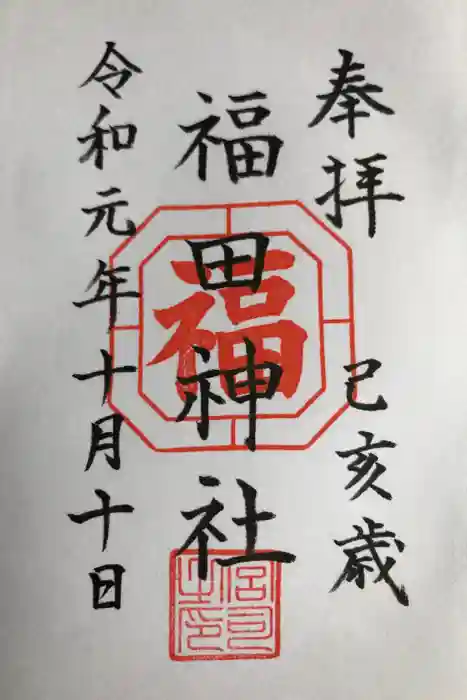 奉拝
己亥歳
福田神社
福
宮司之印
令和元年十月十日